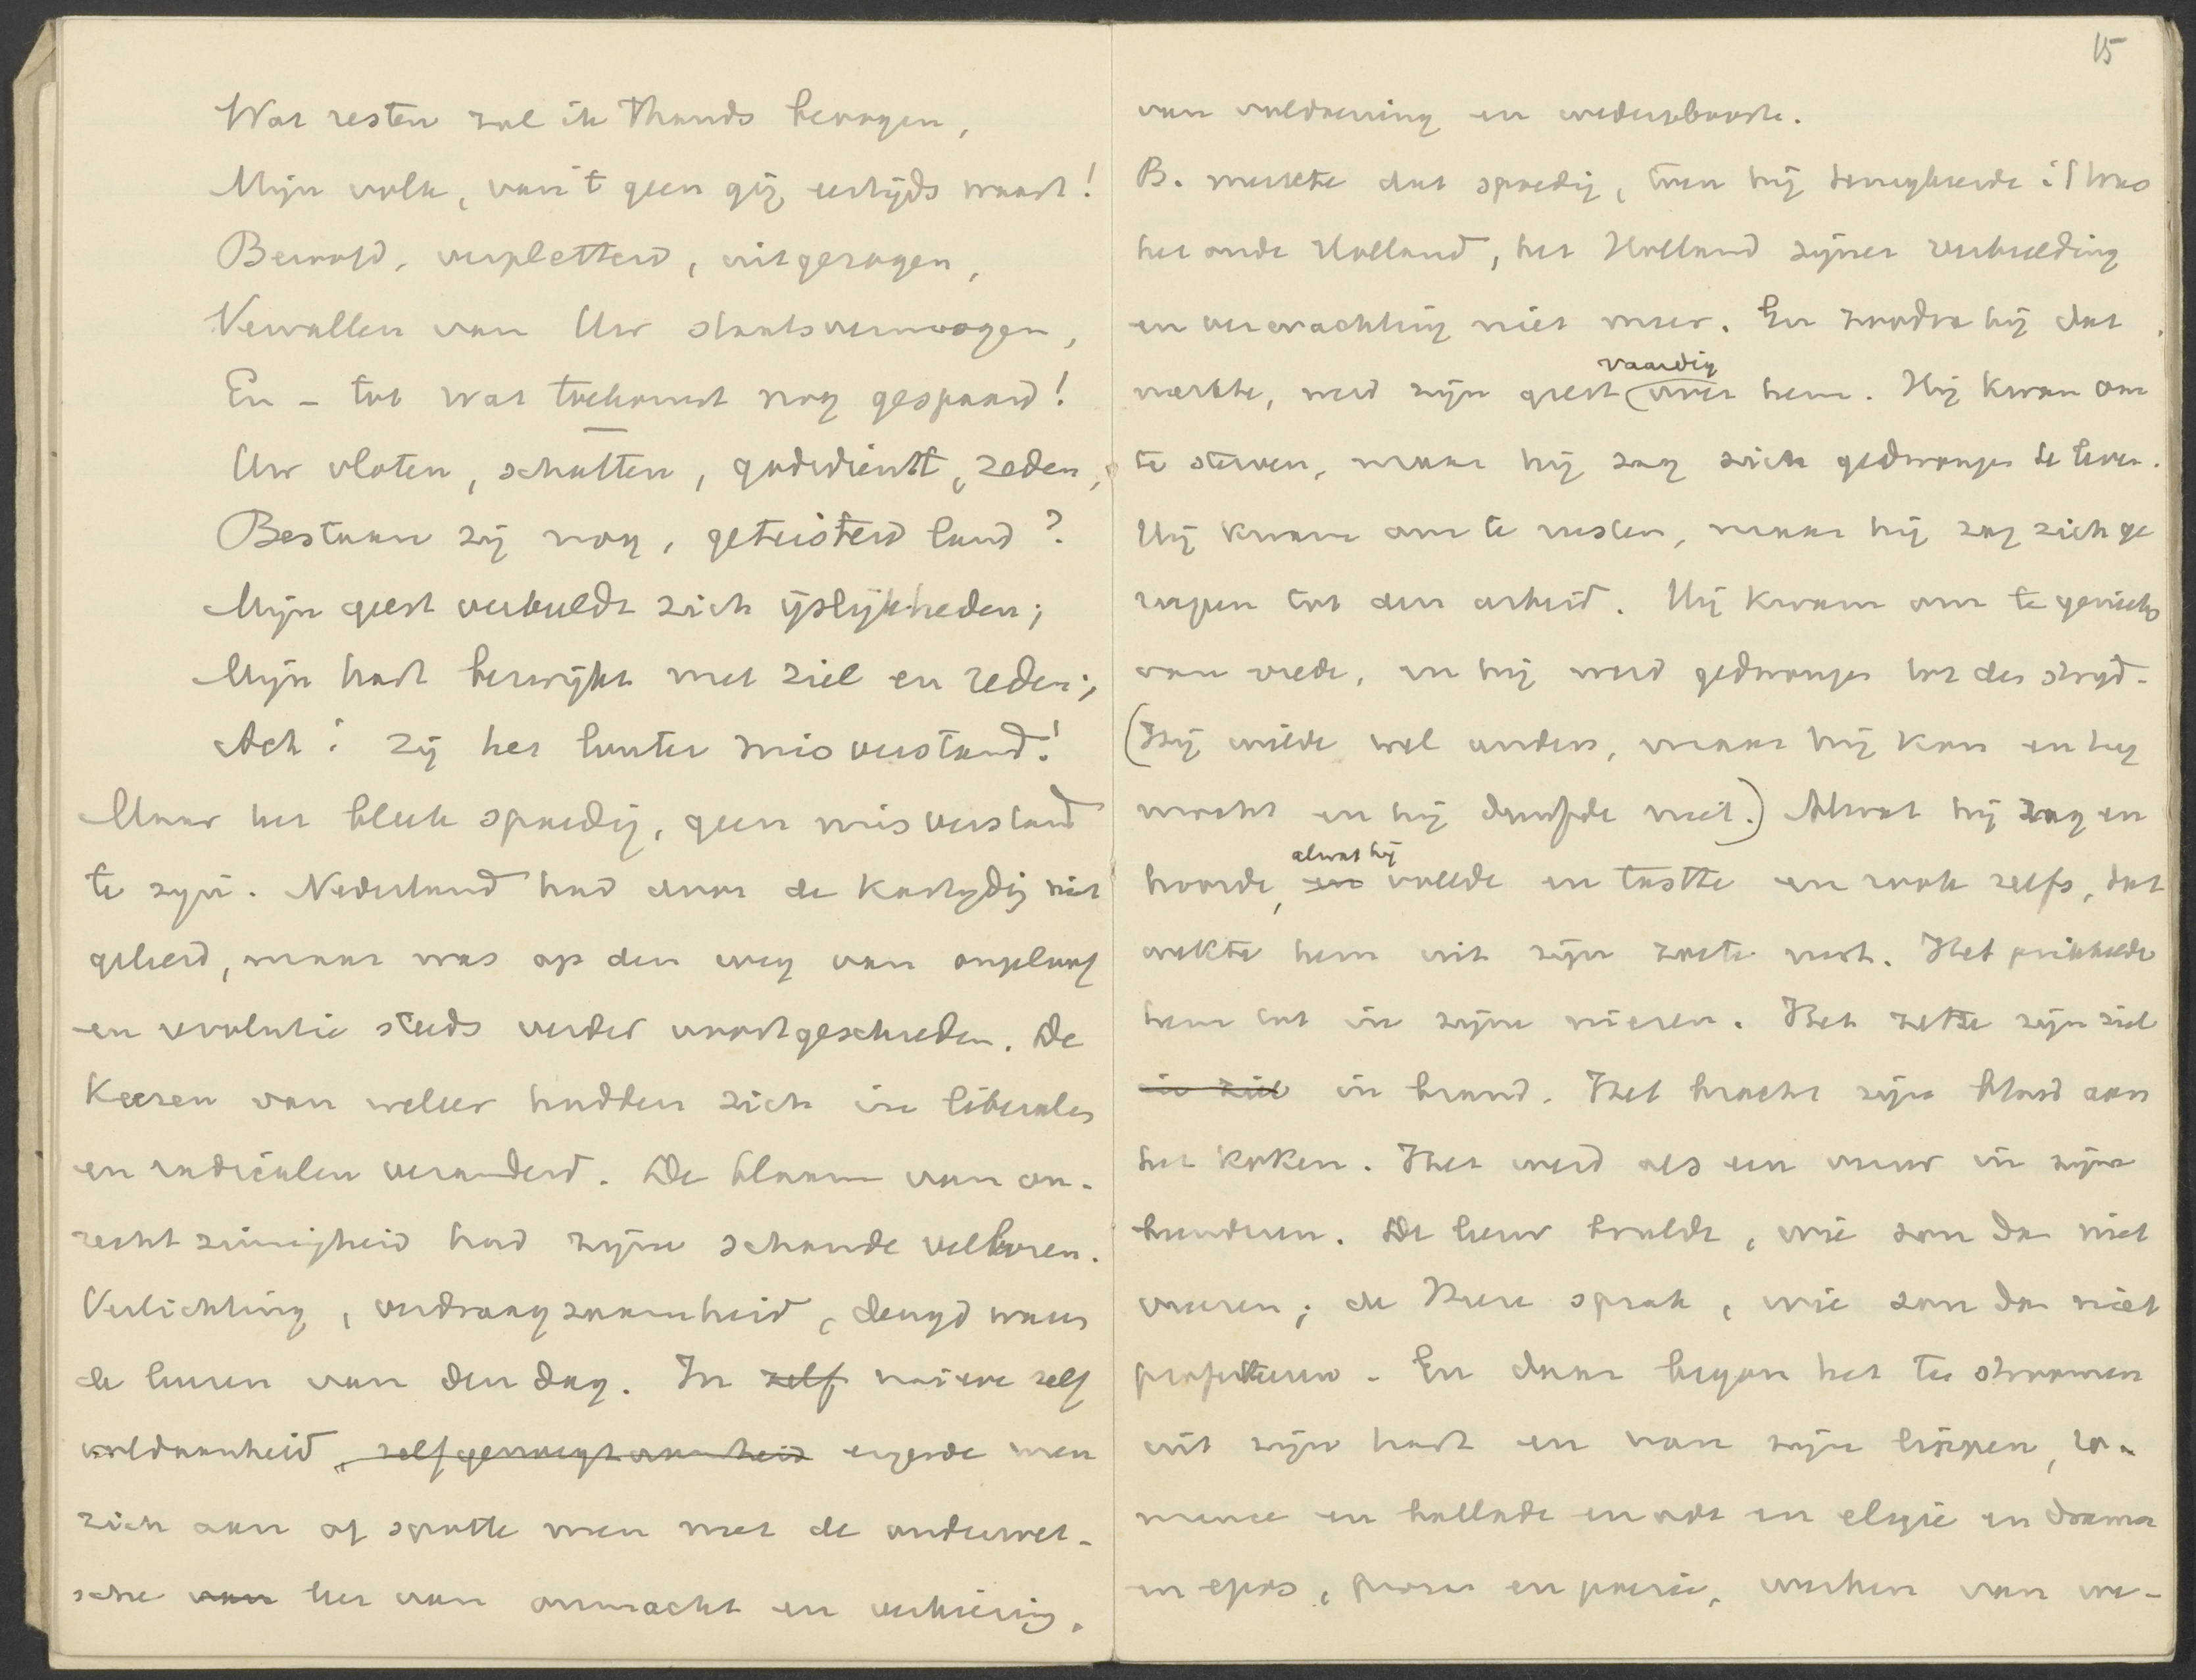 Wat resten zal ik thands beoogen,
Mijn volk, van 't geen gij eertijds waart!
Beroofd, verpletterd, uitgezogen,
Vervallen van Uw staatsvermogen,
En – tot wat toekomst nog gespaard!
Uw vloten, schatten, godsdienst, zeden,
Bestaan zij nog, geteisterd land?
Mijn geest verbeeldt zich ijslijkheden;
Mijn hart bezwijkt met ziel en reden;
Ach! zij het louter misverstand!
Maar het bleek spoedig, geen misverstand
te zijn. Nederland had door de kastijdig niet
geleerd, maar was op den weg van ongeloof
en revolutie steeds verder voortgeschreden. De
Keezen van weleer hadden zich in liberalen
en radicalen veranderd. De blaam van on-
rechtzinnigheid had zijne schande verloren.
Verlichting, verdraagzaamheid, deugd waren
de leuzen van den dag. In zelf naieve zelf
voldaanheid, zelfgenoegzaamheid ergerde men
zich aan of spotte men met de ouderwet-
sche van leer van onmacht en verkiezing,
15
van voldoening en wedergeboorte.
B. merkte dat spoedig, toen hij terugkeerde: 't was
het oude Holland, het Holland zijner verbeelding
en verwachting niet meer. En zoodra hij dat
merkte, werd zijn geest vaardig over hem. Hij kwam om
te sterven, maar hij zag zich gedwongen te leven.
Hij kwam om te rusten, maar hij zag zich ge
roepen tot den arbeid. Hij kwam om te genieten
van vrede, en hij werd gedwongen tot den strijd.
(Hij wilde wel anders, maar hij kon en hij
mocht en hij durfde niet.) Alwat hij zag en
hoorde, en alwat hij voelde en tastte en rook zelfs, dat
wekte hem uit zijn zoete rust. Het prikkelde
hem tot in zijne nieren. Het zette zijn ziel
in ziel in brand. Het bracht zijn bloed aan
het koken. Het werd als een vuur in zijne
beenderen. De leeuw brulde, wie zou dan niet
vreezen; de Heere sprak, wie zou dan niet
profeteeren. En daar begon het te stroomen
uit zijn hart en van zijn lippen, ro-
mance en ballade en ode en elegie en drama
en epos, proza en poezie, werken van we-